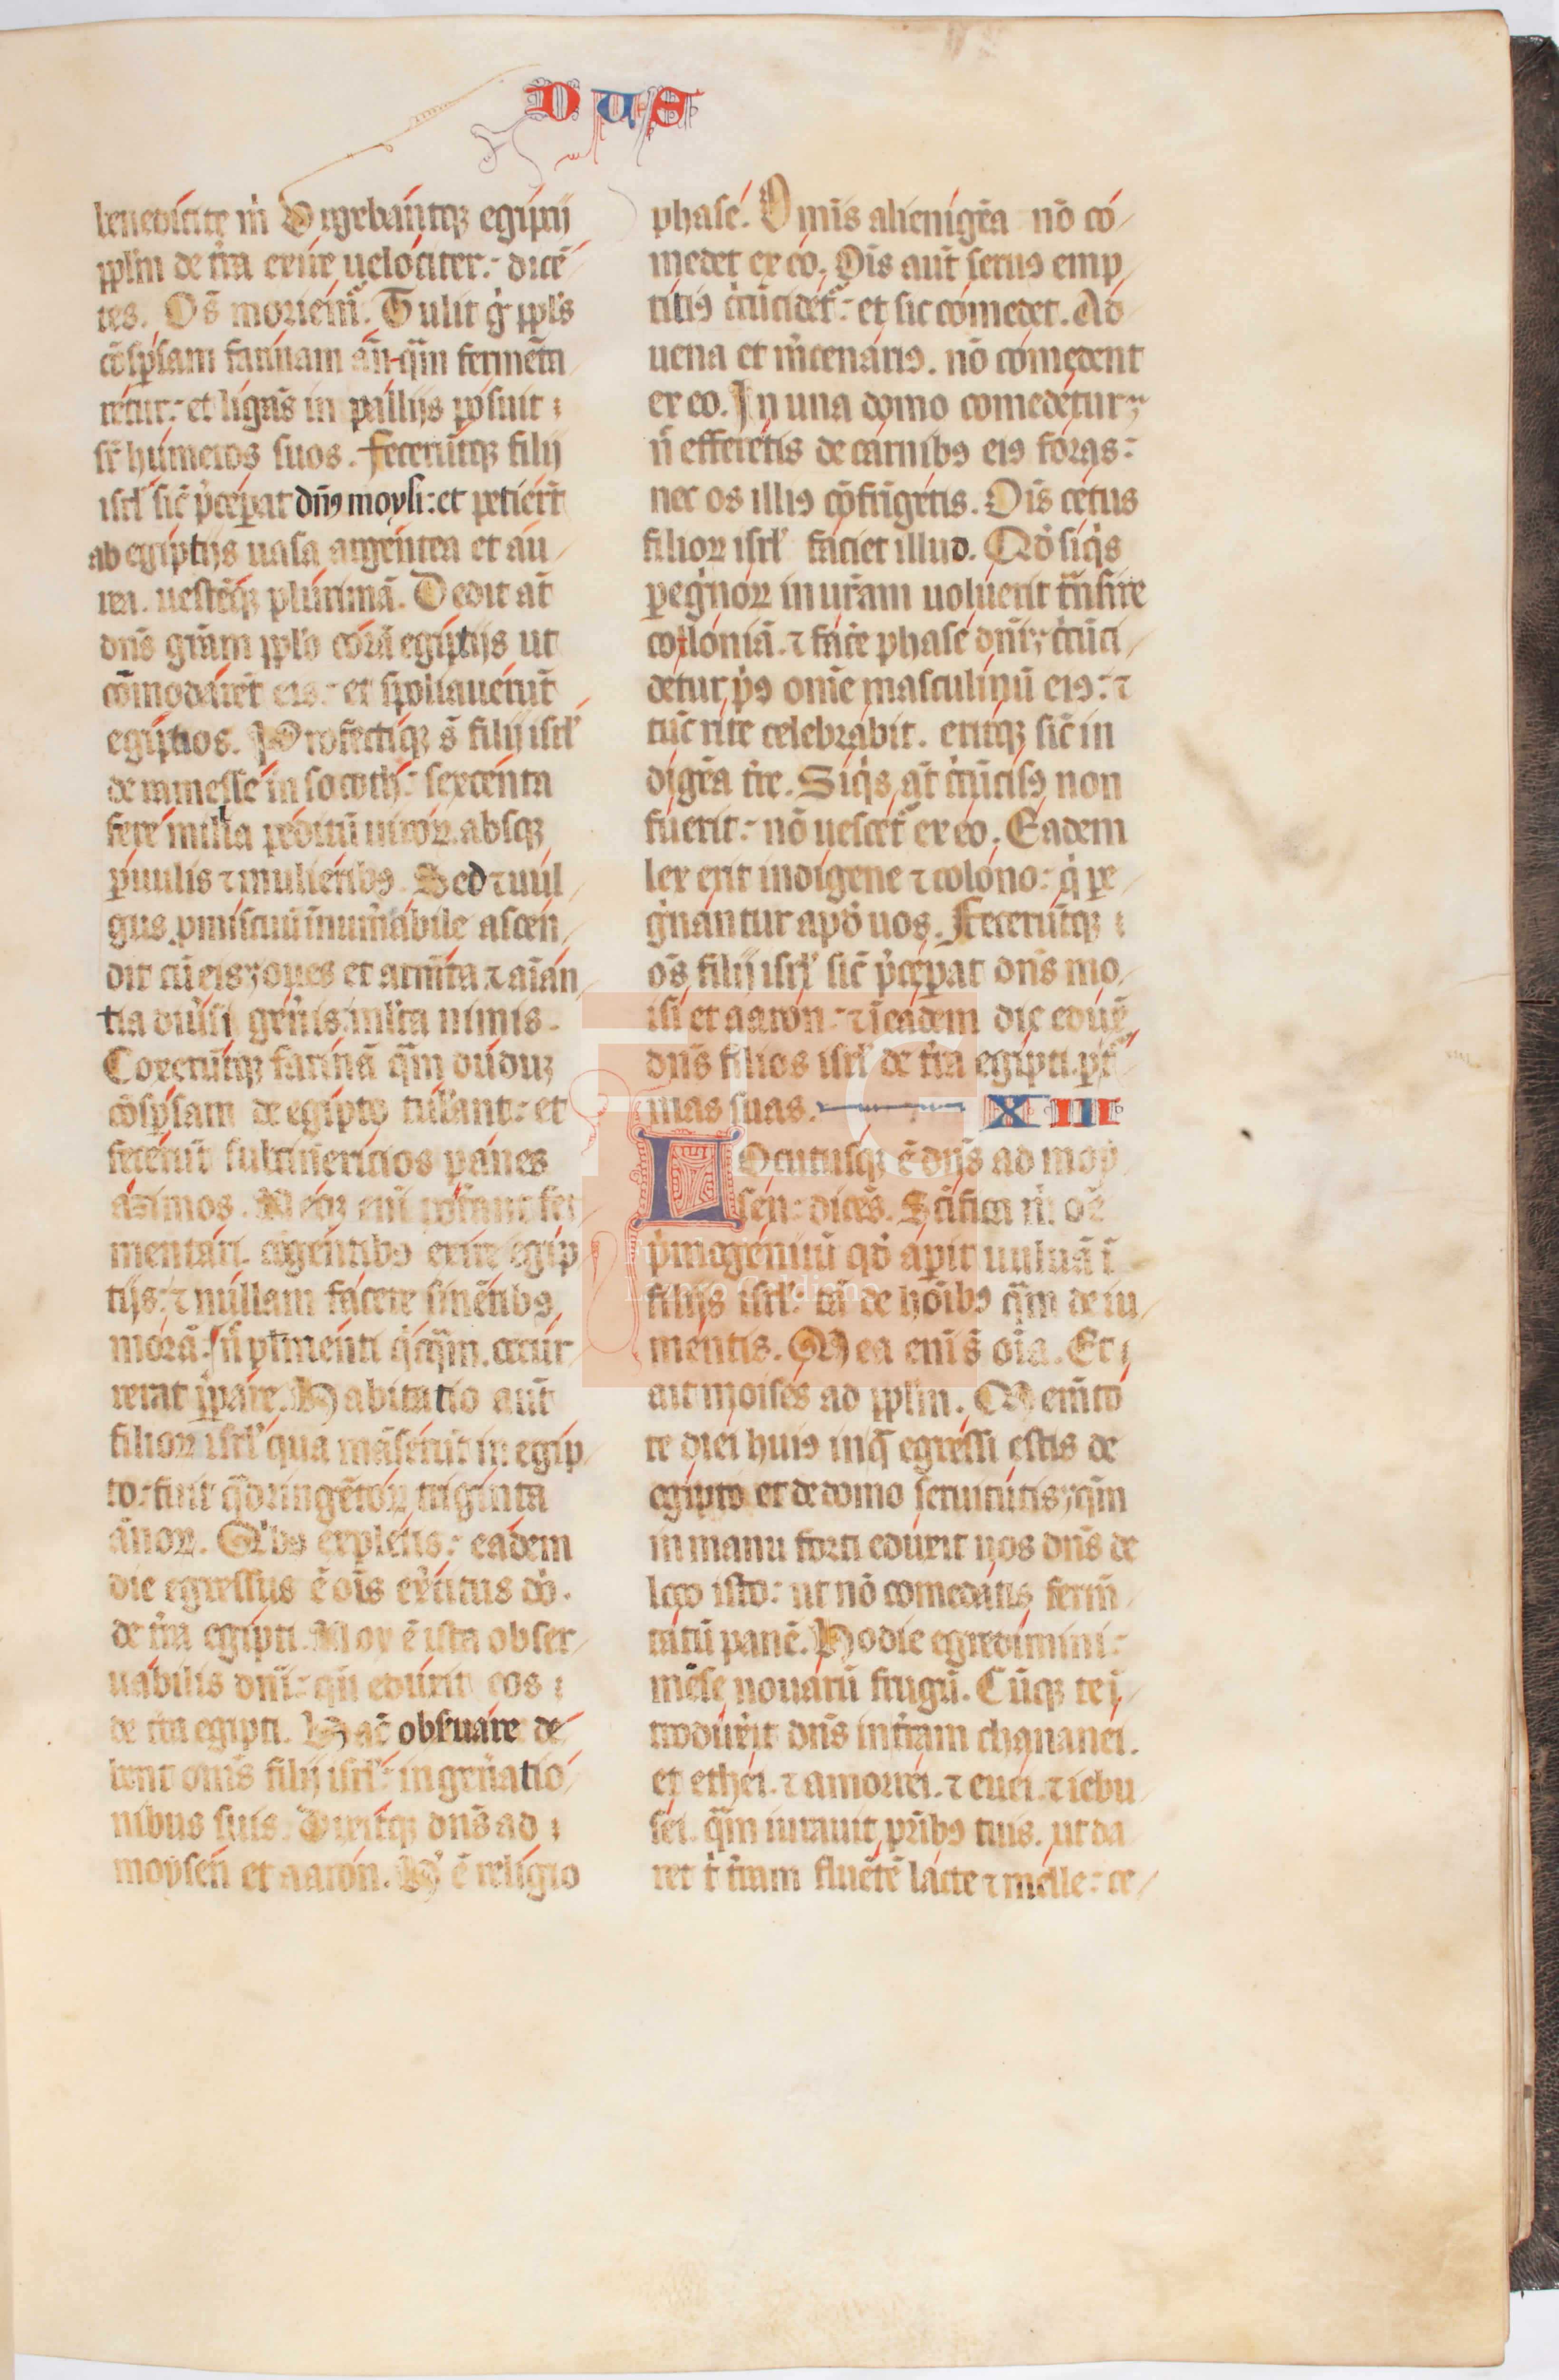 DUS
benedicite m̄ Vrgebantq; egiptij
ppl̄m de tr̄a exire uelociter: dicē
tes. Os̄ moriem̄. Tulit ġ ppl̄s
cōsp̄sam farinam an̄ q̄m fermēta
retur: et ligās in pallijs posuit
sr̄ humeros suos. fecerūtq; filij
isrl̄ sic̄ p̄cep̄at dn̄s moysi: et petierūt
ab egiptijs uasa argentea et au
rea. uestēq; plurimā. Dedit at̄
dn̄s grām pplo corā egiptijs ut
cōmodarēt eis: et spoliauerūt
egiptios. Profectiq; s̄ filij isrl̄
de ramesse in socoth: sexcenta
fere milia peditū uiroꝝ absq;
p̄uulis ⁊ mulierib9. Sed ⁊ uul
gus pmiscuū īnum̄abile ascen
dit cū eis oues et armēta ⁊ aīan
tia diūsi gen̄is multa nimis.
Coxerūtq; farinā q̄m dūduȝ
cōsp̄sam de egipto tulerant: et
fecerūt subcinericios panes
azimos. Neq; eni poterant fer
mentari. cogentib9 exire egip
tijs: ⁊ nullam facere sinētib9
morā: n̄ pulmenti q̇cq̄m occur
rerat p̄pare. Habitatio aut̄
filioꝝ isrl̄ qua māserūt in egip
to: fuit q̄dringētoꝝ triginta
ānoꝝ. Qib9 expletis: eadem
die egressus ē oīs exercitus do.
de tr̄a egipti. Nox ē ista obser
uabilis dn̄i: qn̄ eduxit eos
de tr̄a egipti. Hāc obsuare de
bent omīs filij isrl̄: in gen̄atio
nibus suis. Dixitq; dn̄s ad
moysen et aaron. H̄ ē religio
phase. Omīs alienigēa nō co
medet ex eo. Oīs aut̄ seruus emp
titi9 circūcidet: et sic comedet. Ad
uena et m̄cenari9. nō comedent
ex eo. In una domo comedetur
n̄ efferetis de carnib9 ei9 foras:
nec os illi9 cōfrīgetis. Oīs cetus
filioꝝ isrl̄ faciet illud. Qd̄ siq̇s
pegnoꝝ in ur̄am uoluerit trānsire
colloniā. ⁊ facē phase dn̄i: circūci
detur p̄9 omē masculinū ei9: ⁊
tūc rite celebrabit. eritq; sic̄ in
digēa tr̄e. Siq̇s at̄ circūcis9 non
fuerit: nō uescet̄ ex eo. Eadem
lex erit indigene ⁊ colono: q̇ pe
gnantur apd̄ uos. Fecerūtq;
os̄ filij isrl̄ sic̄ p̄cep̄at dn̄s mo
isi et aaron: ⁊ ī eadem die eduxit
dn̄s filios isrl̄ de tr̄a egipti p̄ t
mas suas. XIII
Locutusq; ē dn̄s ad moy
sen: dicēs. Sācifica m̄ oē
p̄mogenitū qd̄ apit uuluā ī
filijs isrl̄: tā de hoīb9 q̄m de iu
mentis. Mea eni s̄ oīa. Et
ait moises ad ppl̄m. Memēto
te diei hui9 in q̄ egressi estis de
egipto et de domo seruitutis q̄m
in manu forti eduxit uos dn̄s de
loco isto: ut nō comedatis ferm̄
tatū panē. Hodie egredimini:
mēse nouarū frugū. Cūq; te ī
troduxit dn̄s in tr̄am chananei.
et ethei. ⁊ amorrei. ⁊ euei. ⁊ iebu
sei. q̄m iurauit pr̄ib9 tuis. ut da
ret t̄ tr̄am fluētē lacte ⁊ melle: ce